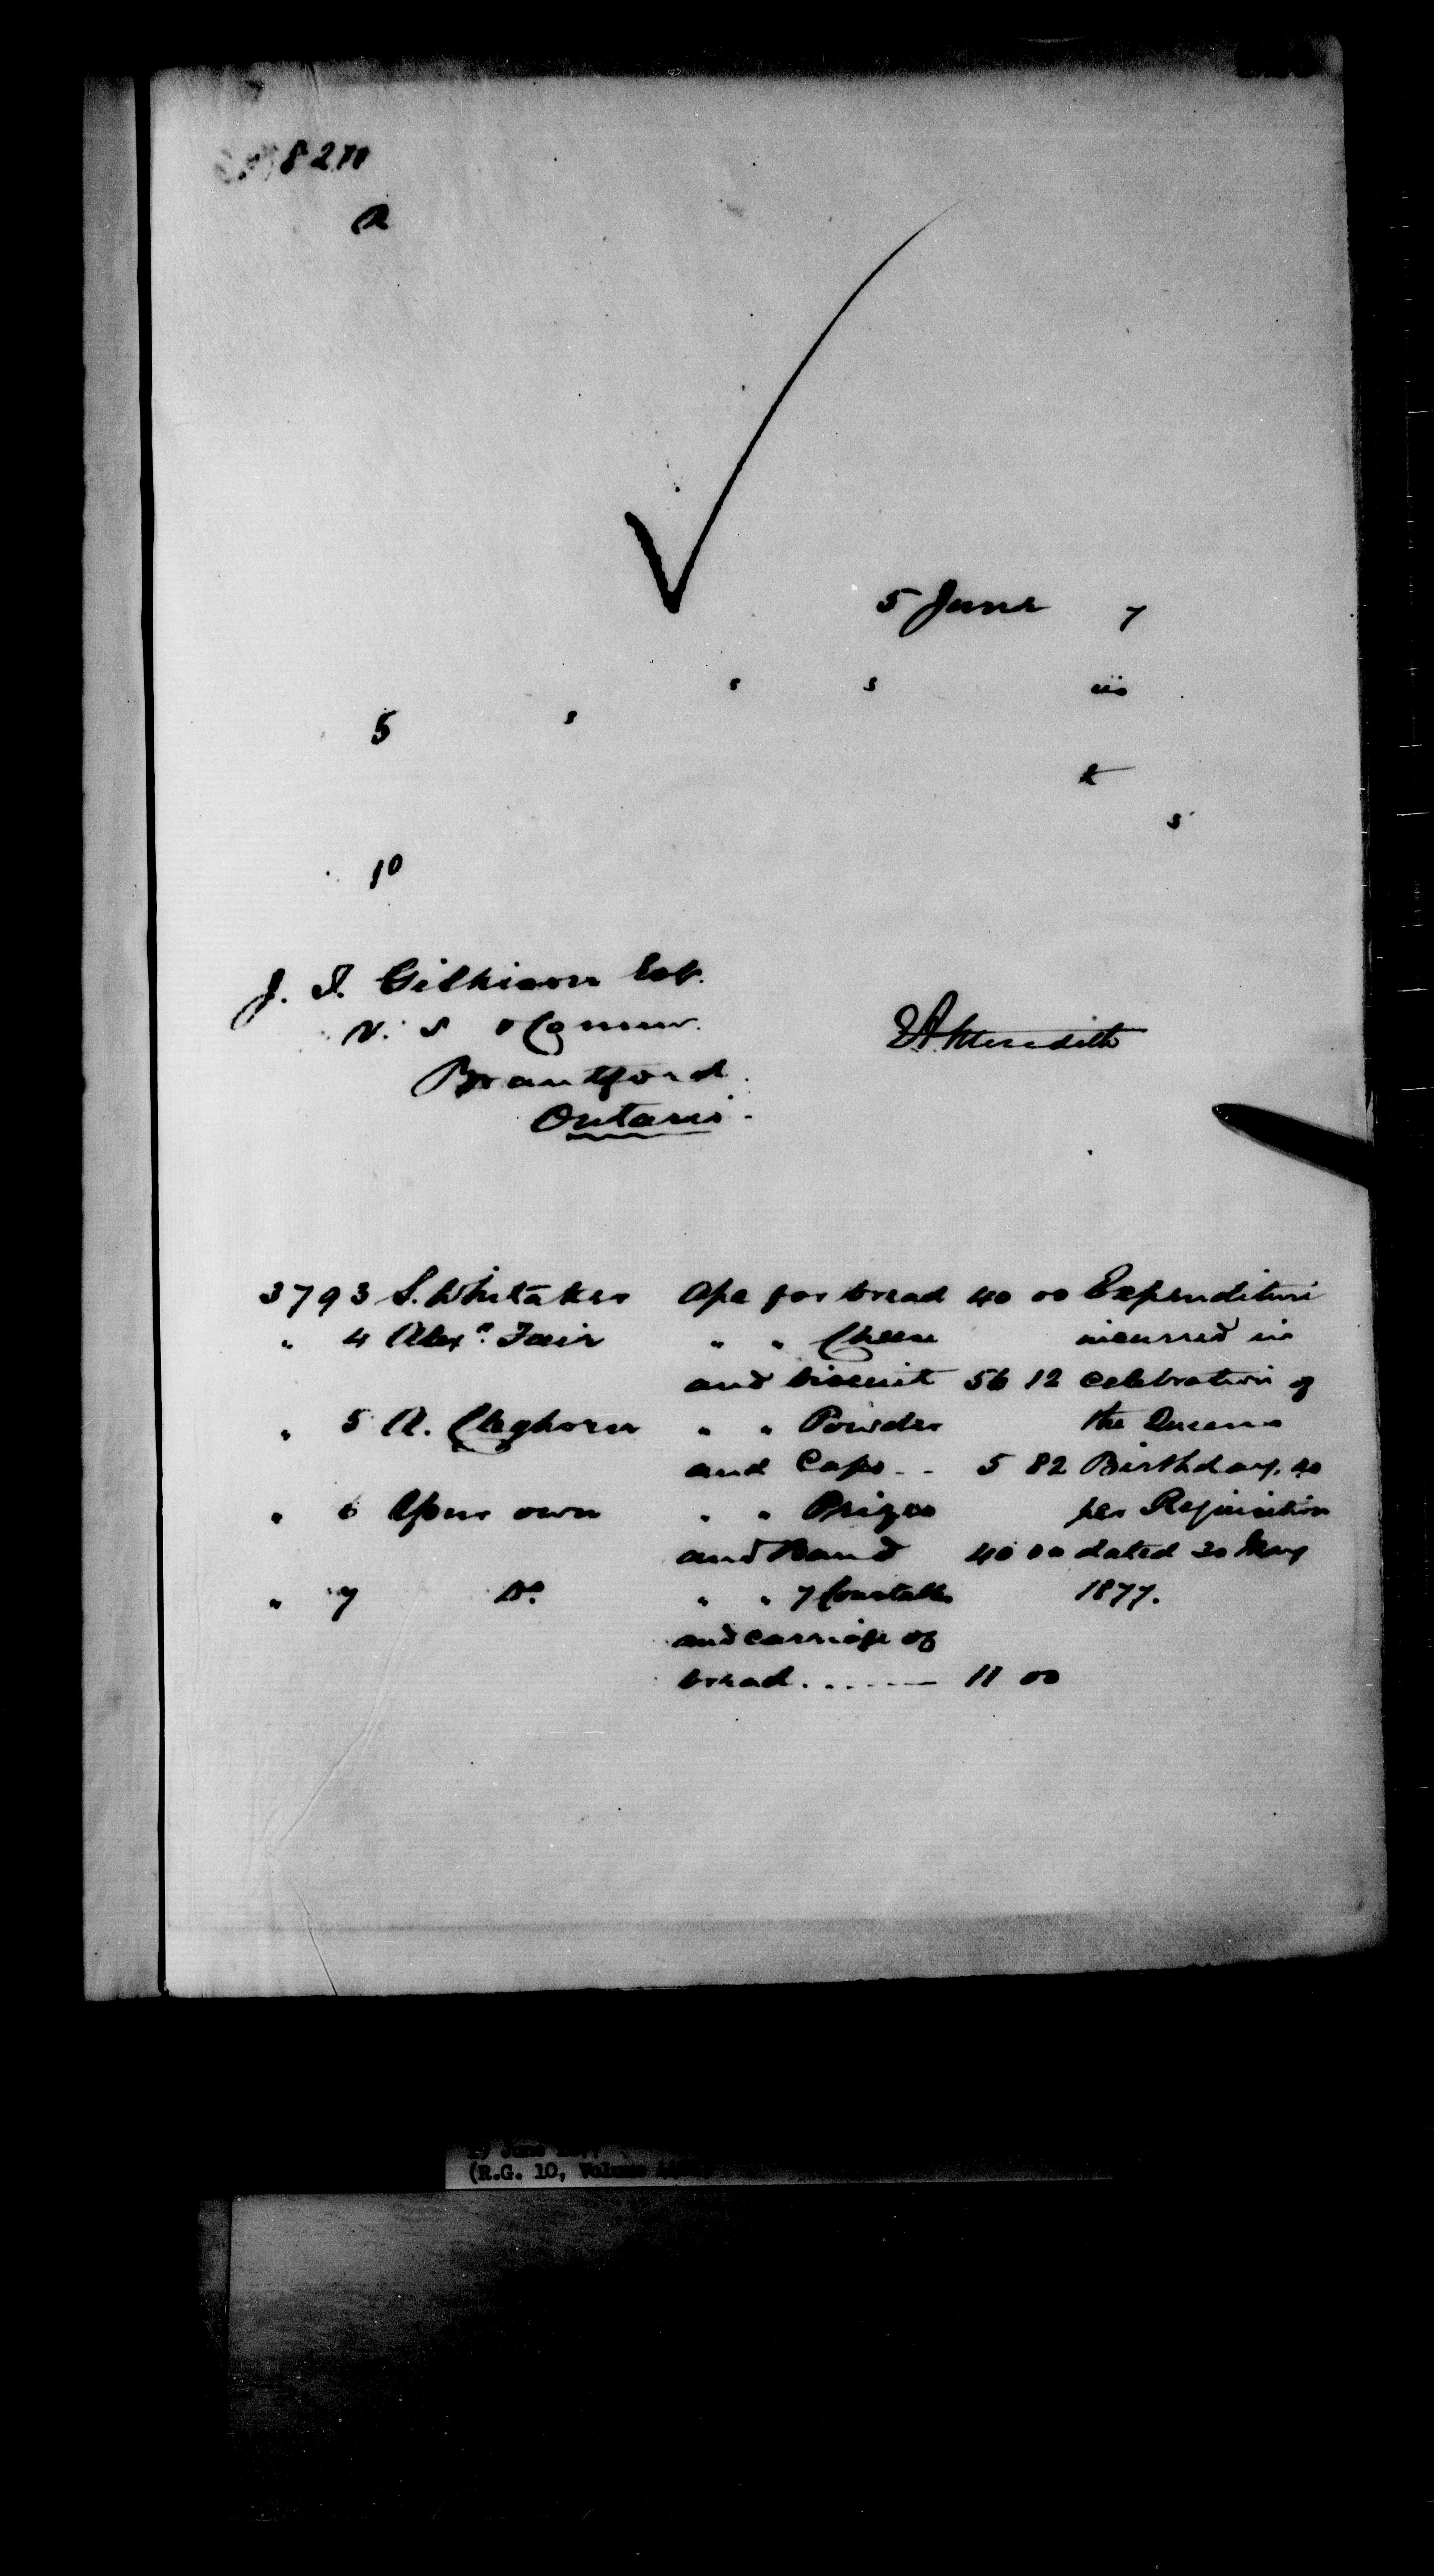 8210
R
5 June 7
s s in
5 s
t
s
10
J. T. Gilkison Esq.
V. S &Commr.
Brantford.
Ontario.
EA Meredith
3793 S. Whitaker Apc for bread 40 00 Expenditure
" 4 Alexr. Fair " " Cheese incurred in
and biscuit 56 12 celebration of
" 5 A. Cleghorn " " Powder the Queens
and Caps - - 5 82 Birthday, as
" 6 Your own " " Prizes per Requisition
and Band 40 00 dated 30 May
" 7 Do. " " 7 Constables 1877.
and carriage of
bread . . . . . . — 11 00
June
(R.G. 10, Volume